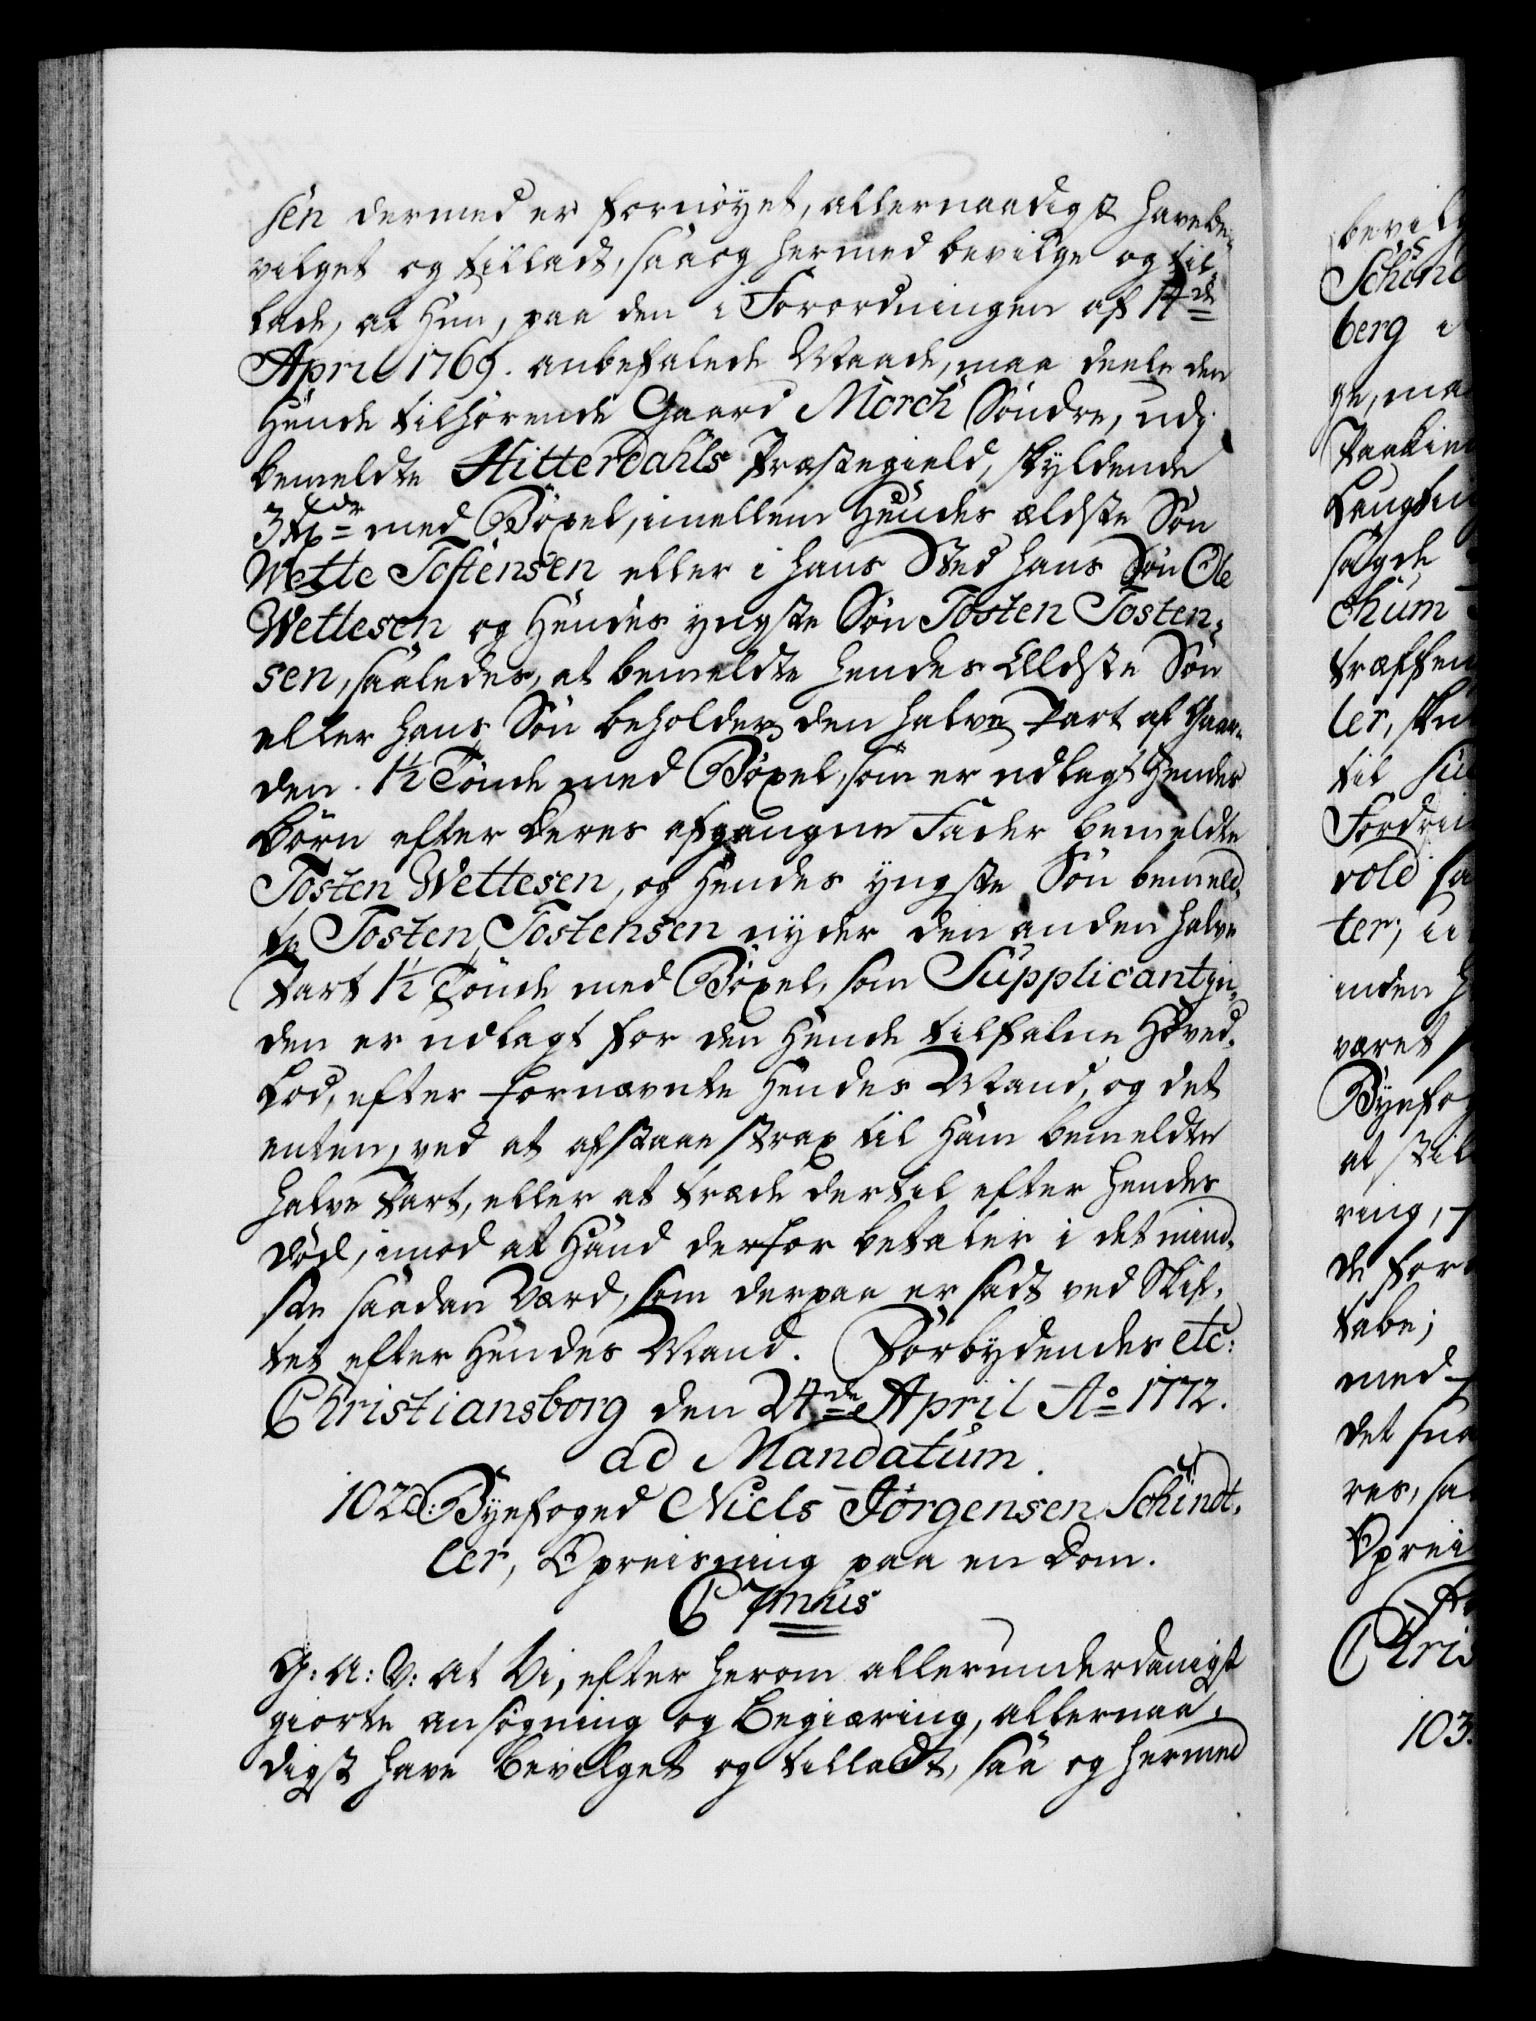 sen dermed er fornøyet, allernaadigst have be-
vilget og tilladt, saa og hermed bevilge og til-
lade, at Hun, paa den i Forordningen af 14de
April 1769. anbefalede Maade, maa deele den
Hende tilhørende Gaard Mörch Söndre, udj
bemeldte Hitterdahls Præstegield, skyldende
3 med Böxel, imellem Hendes ældste Søn
Wette Tostensen eller i hans Sted hans Søn Ole
Wettesen og Hendes yngste Søn Tosten Tosten-
sen, saaledes, at bemeldte hendes Ældste Søn
eller hans Søn beholder den halve Part af Gaar-
den 1½ Tønde med Böxel, som er udlagt Hendes
Børn efter deres afgangne Fader bemeldte
Tosten Wettesen, og Hendes yngste Søn bemeld-
te Tosten Tostensen nyder den anden halve
Part 1½ Tønde med Böxel, som Supplicantin-
den er udlagt for den Hende tilfalne Hoved-
Lod, efter fornævnte Hendes Mand, og det
enten, ved at afstaae strax til Ham bemeldte
halve Part, eller at træde dertil efter Hendes
Død, imod at Hand derfor betaler i det mind-
ste saadan Værd, som derpaa er sadt ved Skif-
tet efter Hendes Mand. Forbydendes etc:
Christiansborg den 24de April Ao 1772.
ad Mandatum.
102. Byefoged Niels Jørgensen Schindt-
ler, Opreisning paa en Dom.
C 7mus
G: A: V: at Vi, efter herom allerunderdanigst
giorte ansøgning og Begiæring, allernaa-
digst have bevilget og tilladt, saa og hermed
bevilg
Schind
berg i
ge, ma
Laugtin
søgde
chum
træffen
ler,
til
vold
ter;
inden
været
Byefog
at
ring,
de for
tabe;
med
det
res, saa
Oprei
Chris
103.